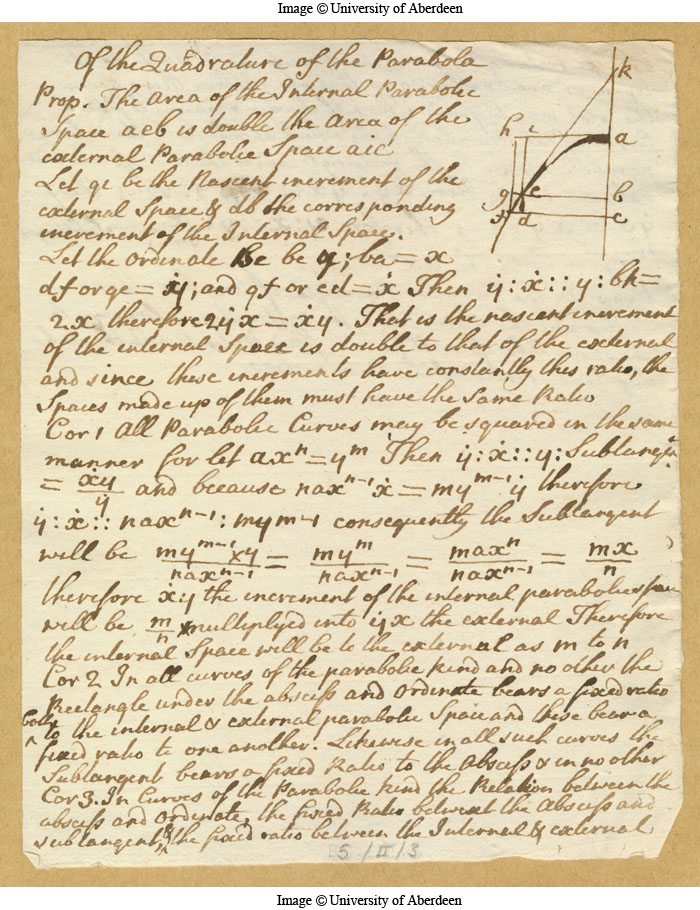 Image © University of Aberdeen
Of the Quadrature of the Parabola
Prop. The Area of the Internal Parabolic
Space aeb is double the Area of the
external Parabolic Space aie
Let qe be the Nascent increment of the
external Space & db the corresponding
increment of the Internal Space.
Let the Ordinate Be be y; ba = x
df or ge = ẏ; and gf or ed = ẋ Then ẏ : ẋ :: y : bk =
2x therefore 2ẏx = ẋy. That is the nascent increment
of the internal Space is double to that of the external
and since these increments have constantly this ratio, the
Spaces made up of them must have the Same Ratio
Cor 1 All Parabolic Curves may be squared in the same
manner for let axⁿ = yᵐ Then ẏ : ẋ :: y : Subtangt
= ẋy/ẏ and because naxⁿ⁻¹ẋ = myᵐ⁻¹ẏ therefore
ẏ : ẋ :: naxⁿ⁻¹ : myᵐ⁻¹ consequently the Subtangent
will be myᵐ⁻¹×y/naxⁿ⁻¹ = myᵐ/naxⁿ⁻¹ = maxⁿ/naxⁿ⁻¹ = mx/n
therefore ẋy the increment of the internal parabolic space
will be m/n multiplyed into ẏx the external Therefore
the internal Space will be to the external as m to n
Cor 2 In all curves of the parabolic kind and no other the
Rectangle under the absciss and Ordinate bears a fixed ratio
both
to the internal & external parabolic Space and these bear a
fixed ratio to one another. Likewise in all such curves the
Subtangent bears a fixed Ratio to the Absciss & in no other
Cor 3. In Curves of the Parabolic kind the Relation between the
absciss and Ordinate, the fixed Ratio betwixt the Absciss and
subtangent, & the fixed ratio between the Internal & external
k
h i a
g e b
f d c
5/II/3
Image © University of Aberdeen